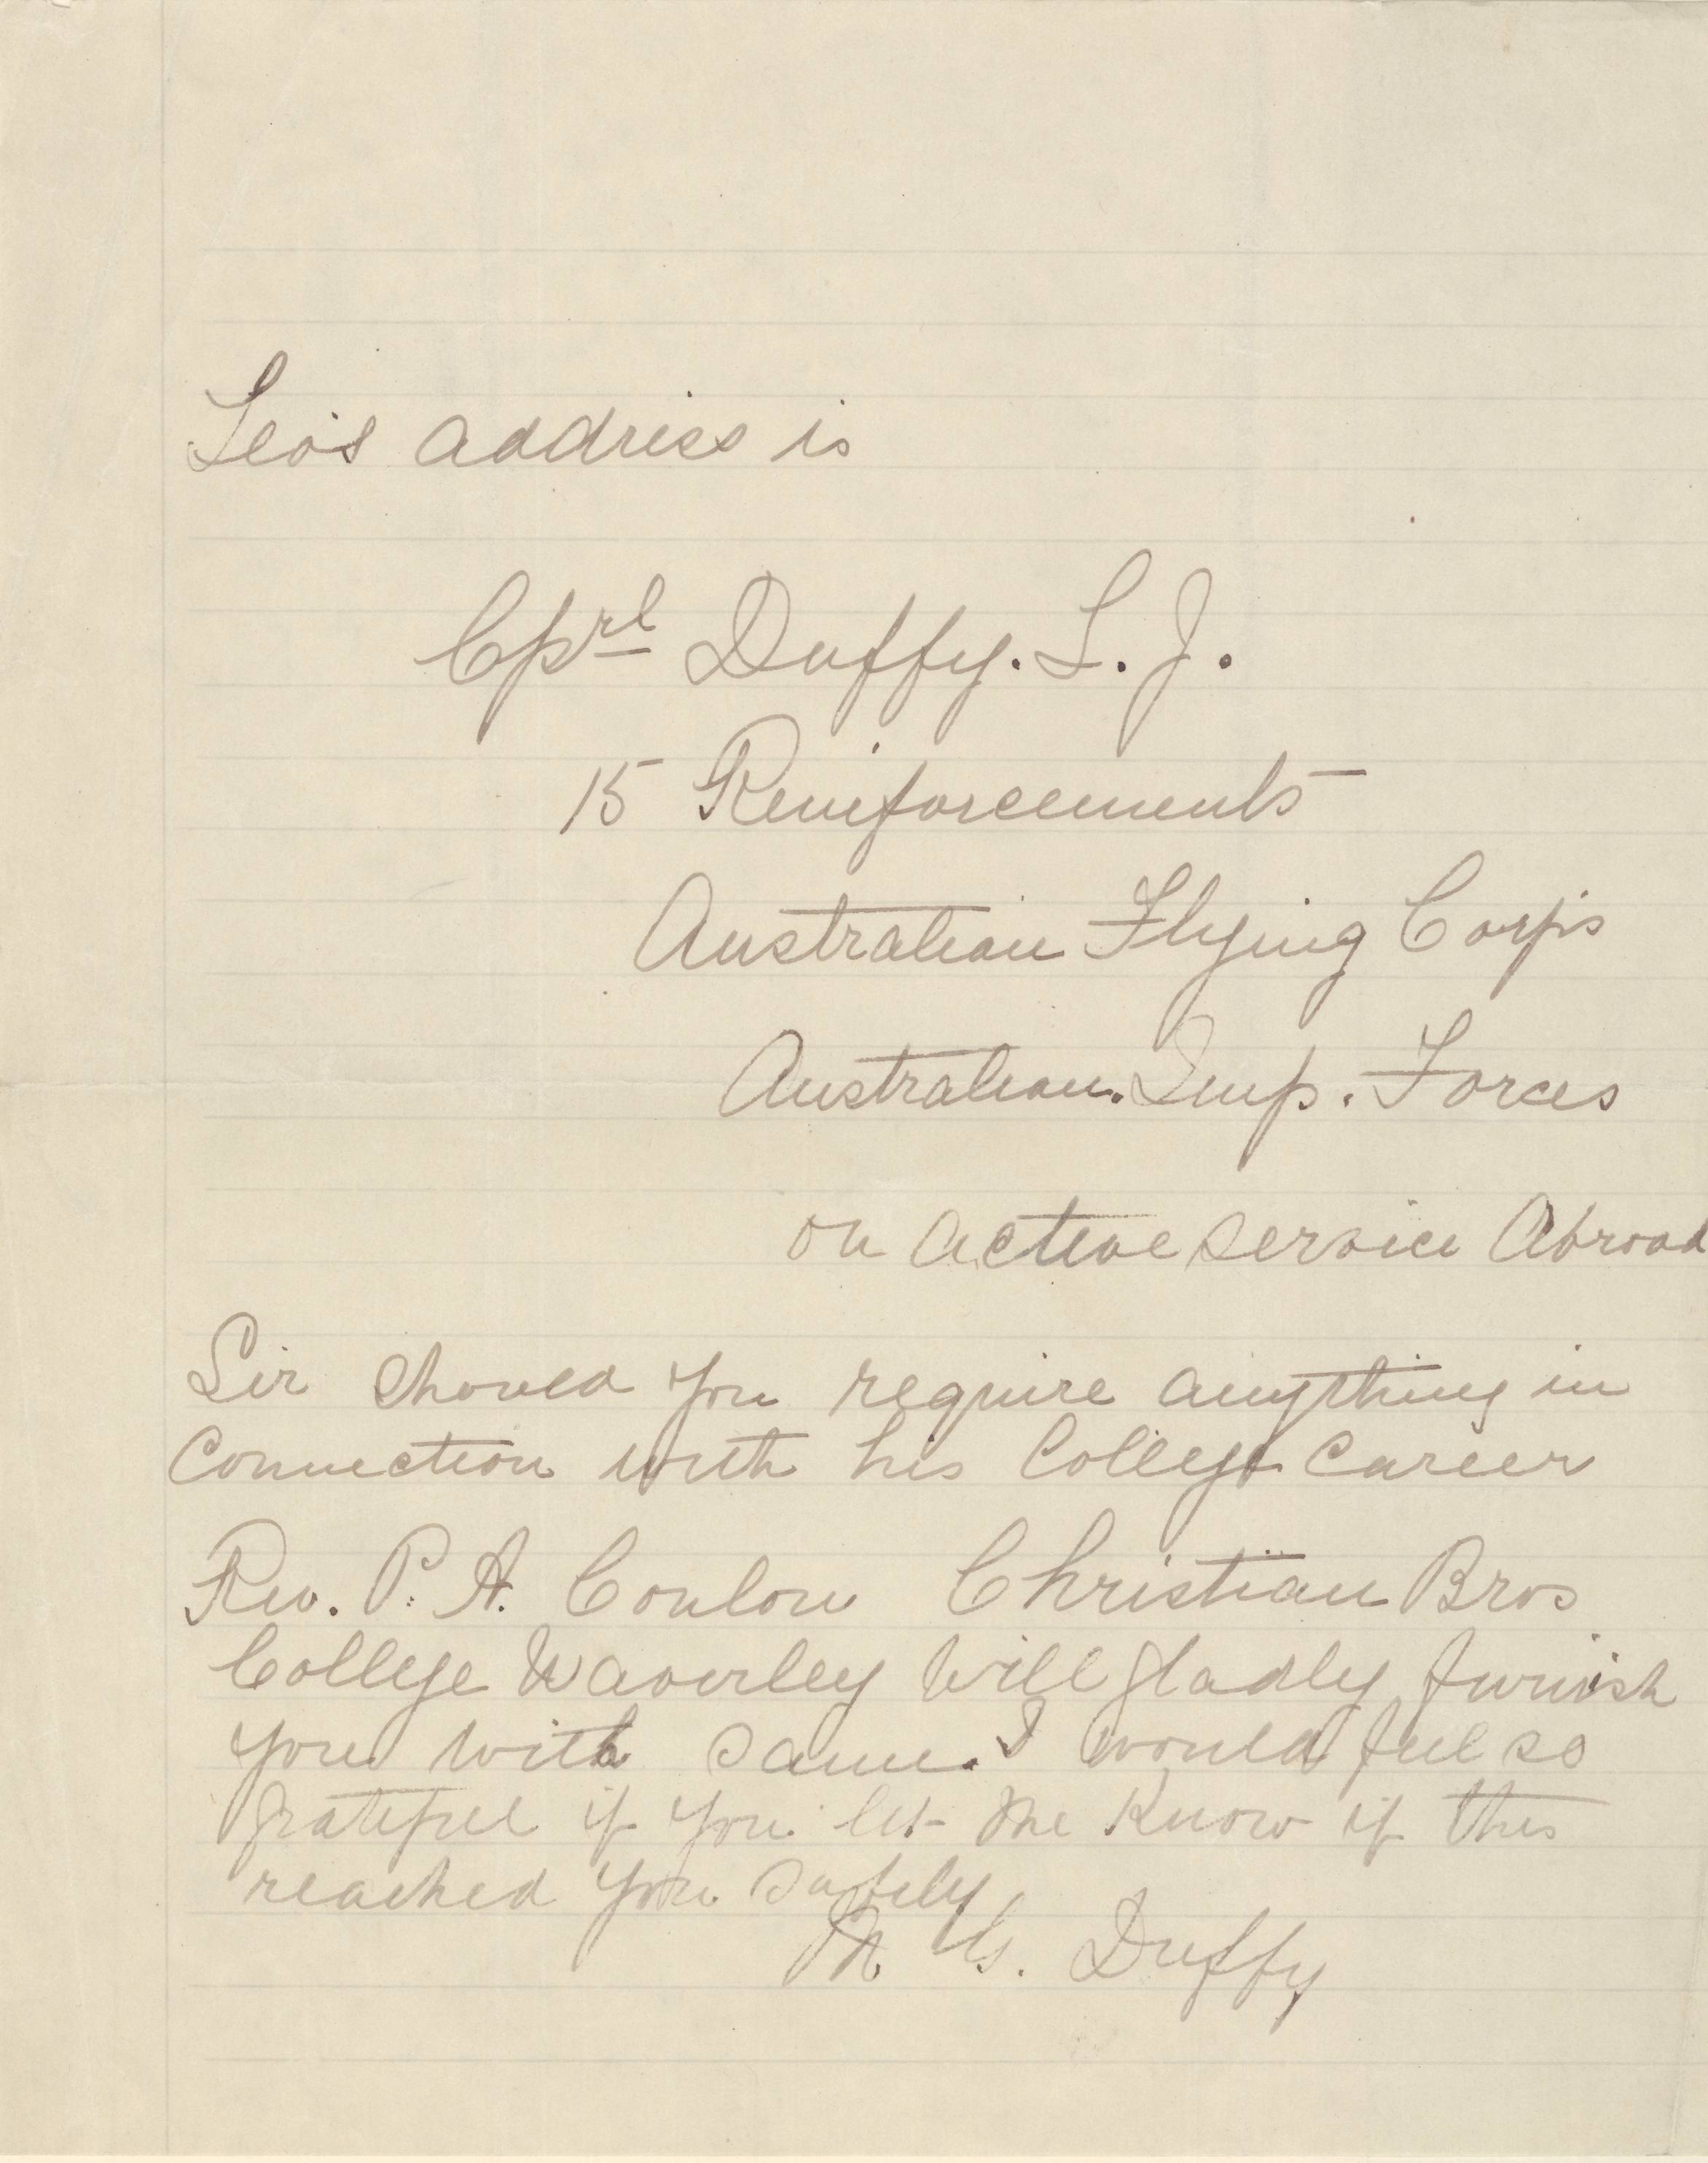 Leo's address is
Cprl Duffy. L. J.
15 Reinforcements
Australian Flying Corps
Australian. Imp. Forces
on active service Abroad
Sir should you require anything in
Connection with his College Career
Rev. P. A. Conlon Christian Bros
College Waverley will gladly furnish
you with same. I would feel so
grateful if you let me know if this
reached you safely
M G. Duffy